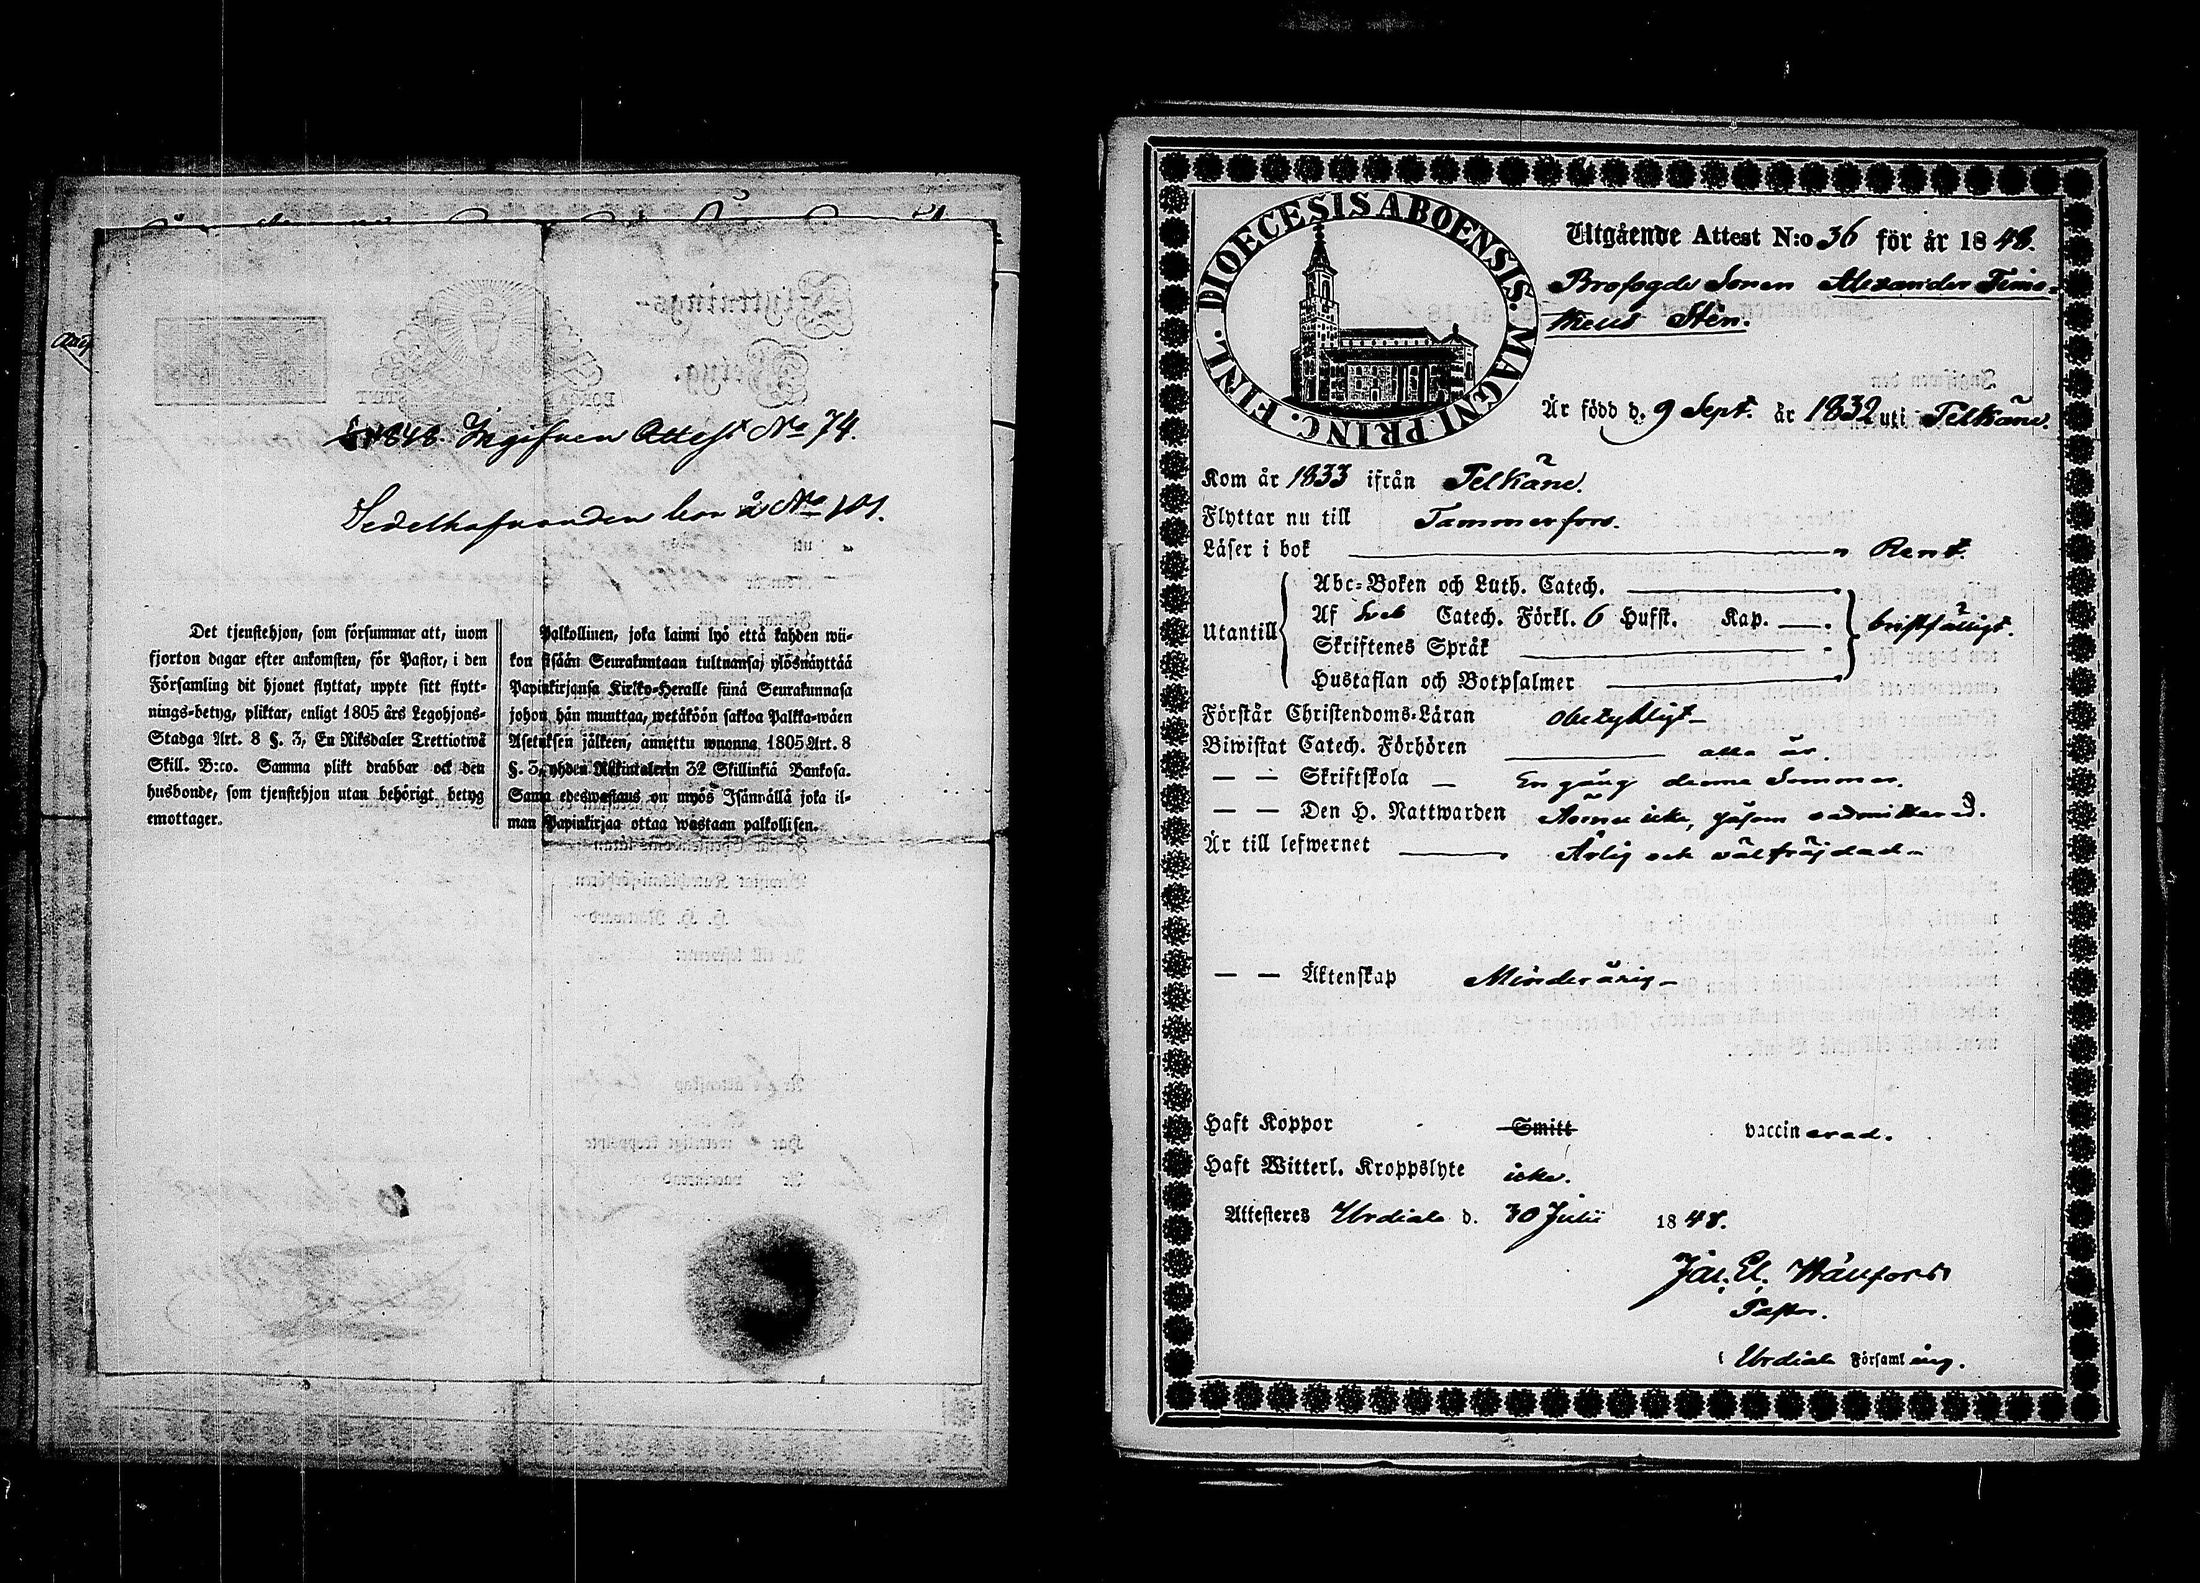 1848. Ingifven Attest No 74.
Sedelhafvanden bor å No 101.
Det tjenstehjon, som försummar att, inom
fjorton dagar efter ankomsten, för Pastor, i den
Församling dit hjonet flyttat, uppte sitt flytt-
nings-betyg, pliktar, enligt 1805 års Legohjons-
Stadga Art. 8 §. 3, En Riksdaler Trettiotwå
Skill. B:co. Samma plikt drabbar ock den
husbonde, som tjenstehjon utan behörigt betyg
emottager.
Palkollinen, joka laimi lyö että kahden wii-
kon sisään Seurakuntaan tultuansa, ylösnäyttää
Papinkirjansa Kirkko-Heralle siinä Seurakunnasa
johon hän muuttaa, wetäköön sakkoa Palkka-wäen
Asetuksen jälkeen, annettu wuonna 1805 Art. 8
§. 3, yhden Riikintalerin 32 Skillinkiä Bankosa.
Sama edeswastaus on myös Isännällä joka il-
man Papinkirjaa ottaa wastaan palkollisen.
DIOECESIS ABOENSIS. MAGNI PRINC. FINL.
Utgående Attest N:o 36 för år 1848.
Brofogde Sonen Alexander Timo-
theus Sten.
Är född d. 9 Sept. år 1832 uti Pelkäne.
Kom år 1833 ifrån Pelkäne.
Flyttar nu till Tammerfors.
Läser i bok Rent.
Utantill
Abc-Boken och Luth. Catech.
Af Sveb Catech. Förkl. 6 Hufst. Kap.
Skriftenes Språk
Hustaflan och Botpsalmer
bristfälligt.
Förstår Christendoms-Läran obetydligt
Biwistat Catech. Förhören alla år.
— — Skriftskola En gång denna Sommar.
— — Den H. Nattwarden Ännu icke, såsom oadmitterad.
Är till lefwernet Ärlig och välfräjdad
— — Äktenskap Minderårig
Haft Koppor Smitt vaccinerad.
Haft Witterl. Kroppslyte icke.
Attesteres Urdiala d. 30 Julii 1848.
Pastor.
i Urdiala Församling.